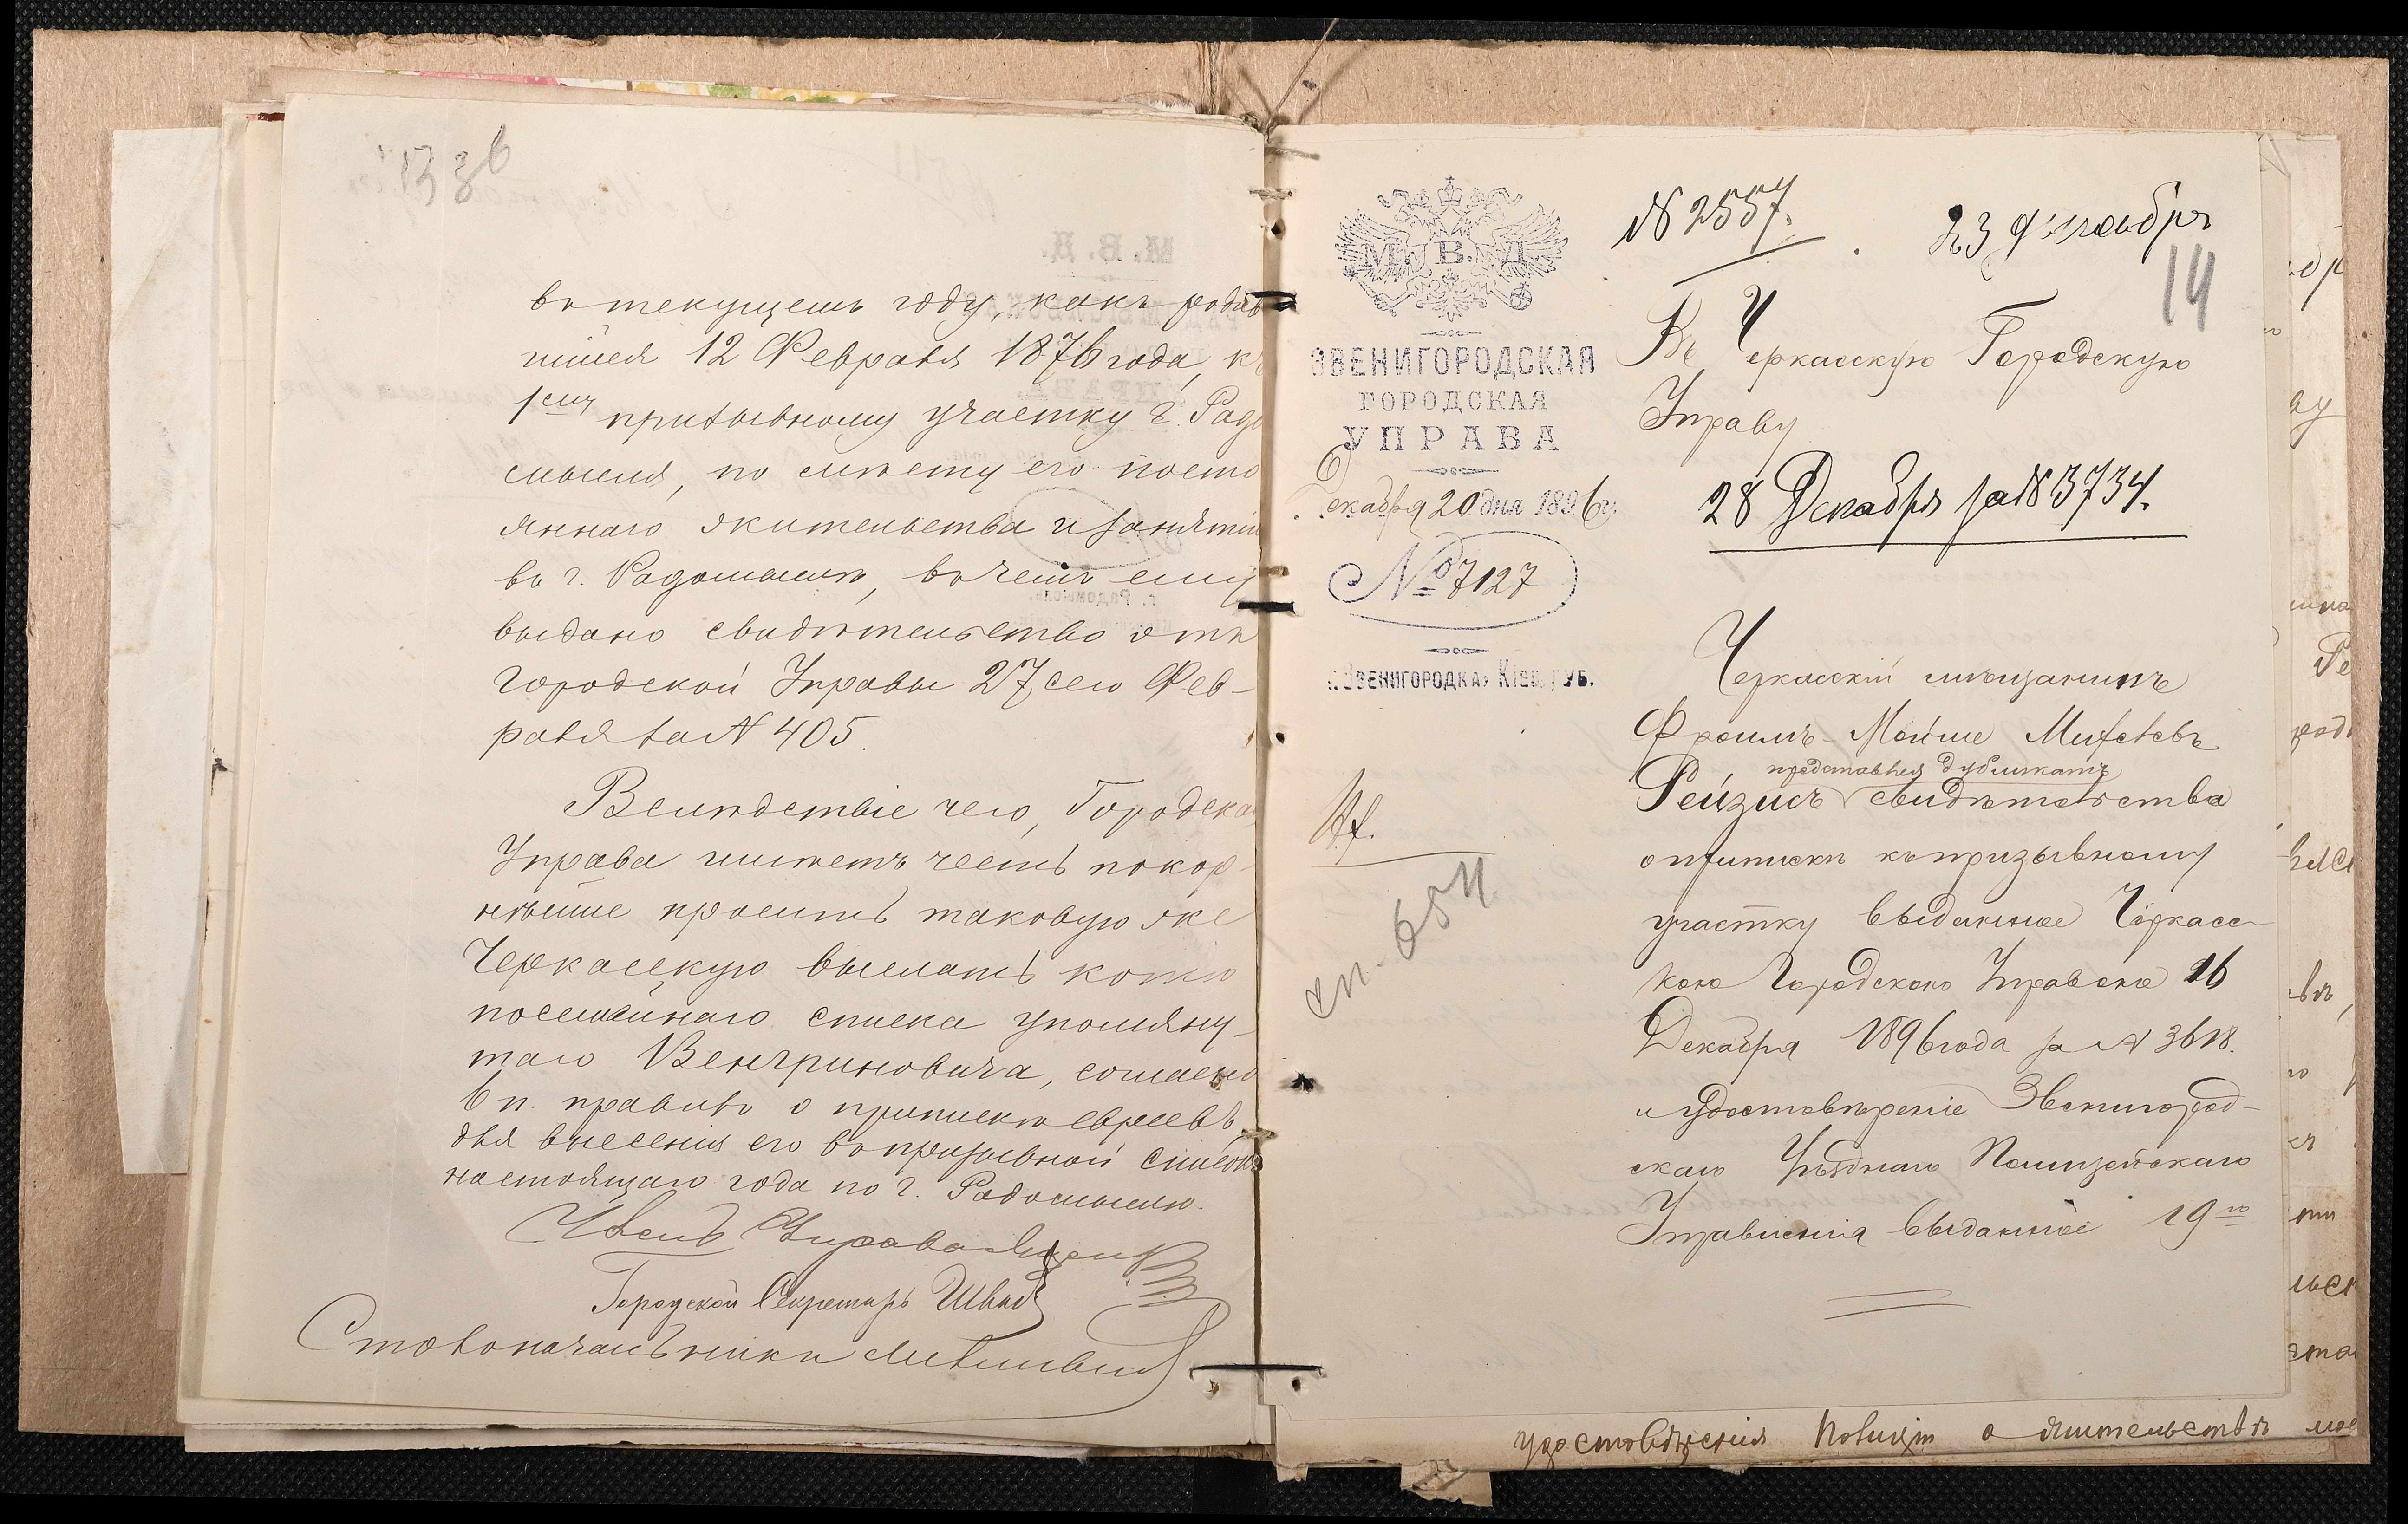 13 зв
въ текущемъ году, какъ родив
шійся 12 Февраля 1876 года, къ
1ому призывному участку г. Радо
мысля, по мѣсту его посто
яннаго жительства и занятій
въ г. Радомыслѣ, въ чемъ ему
выдано свидѣтельство отъ
Городской Управы 27 сего Фев-
раля за № 405.
Вслѣдствіе чего, Городская
Управа имѣетъ честь покор-
нѣйше просить таковую же
Черкасскую выслать копію
посемейнаго списка упомяну-
таго Венгриновича, согласно
6 п. правилъ о припискѣ евреевъ
для внесенія его въ призывной списокъ
настоящаго года по г. Радомыслю.
Членъ Управы
Городской Секретарь
Столоначальникъ
М. В. Д.
ЗВЕНИГОРОДСКАЯ
ГОРОДСКАЯ
УПРАВА
Декабря 20 дня 1896 г.
№ 7127
г. ЗВЕНИГОРОДКА, Кіев. ГУБ.
сп. 654.
№ 2557. 23 Декабря
14
Въ Черкасскую Городскую
Управу
28 Декабря за № 3734.
Черкасскій мѣщанинъ
Фроимъ-Мойше
представляя дубликатъ
Рейзисъ свидѣтельства
о припискѣ къ призывному
участку выданное Черкасс-
кою Городскою Управою 16
Декабря 1896 года за № 3618.
и удостовѣреніе Звенигород-
скаго Уѣзднаго Полицейскаго
Управленія выданное 19го
удостовѣренія Полиціи о жительствѣ